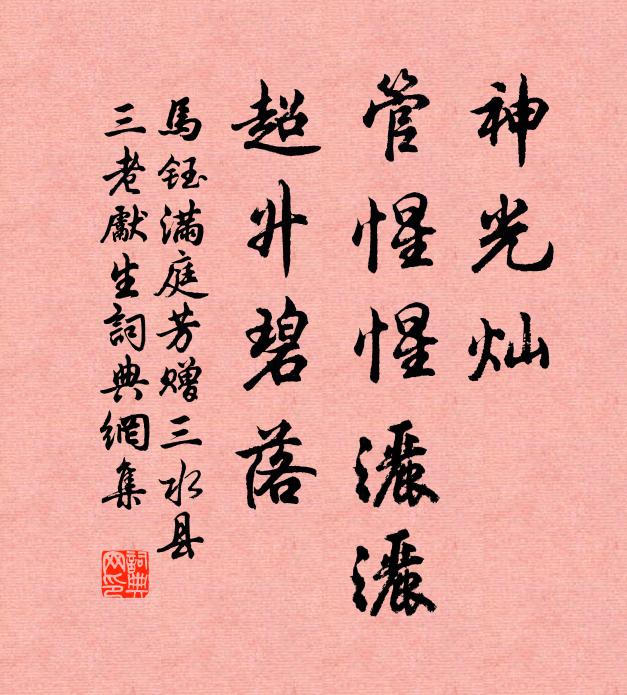 神光灿
管惺惺灑灑
超升碧落
馬钰满庭芳赠三水县
三老獻生詞典網集
詞典网印